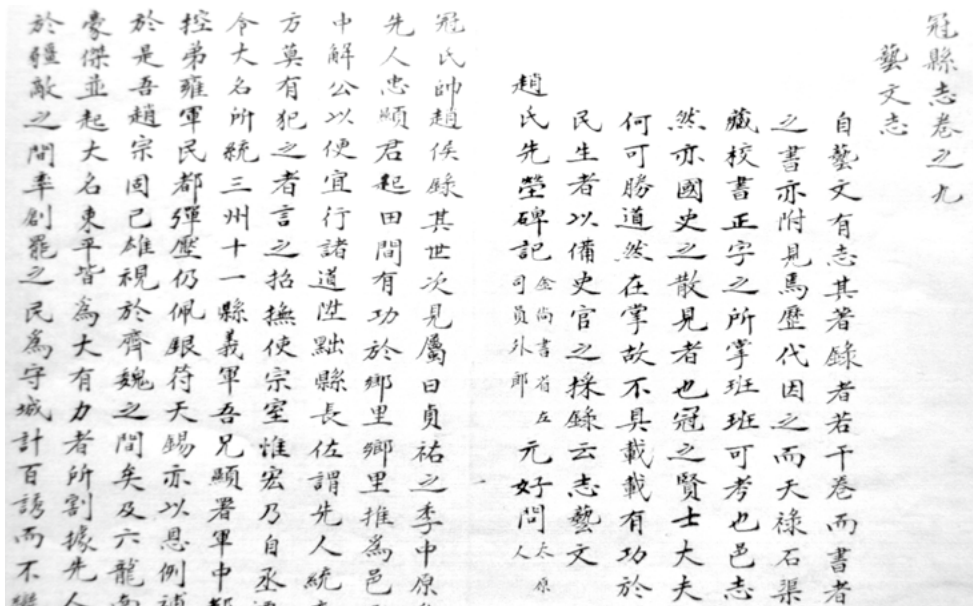 冠縣志卷之九
藝文志
自藝文有志其著錄者若干卷而書者
之書亦附見焉歷代因之而天祿石渠
藏校書正字之所掌班班可考也邑志
然亦國史之散見者也冠之賢士大夫
何可勝道然在掌故不具載載有功於
民生者以備史官之採錄云志藝文
趙氏先塋碑記 金尚書省左司員外郎 元好問 太原人
冠氏帥趙侯錄其世次見屬曰貞祐之季中原
先人忠顯君起田間有功於鄉里鄉里推為邑
中解公以便宜行諸道陞黜縣長佐謂先人統
方莫有犯之者言之招撫使宗室惟宏乃自丞
令大名所統三州十一縣義軍吾兄顯署軍中都
控弟雍軍民都彈壓仍佩銀符天錫亦以恩例補
於是吾趙宗固已雄視於齊魏之間矣及六龍南
豪傑並起大名東平皆為大有力者所割據先人
於彊敵之間率創罷之民為守城計百謫而不